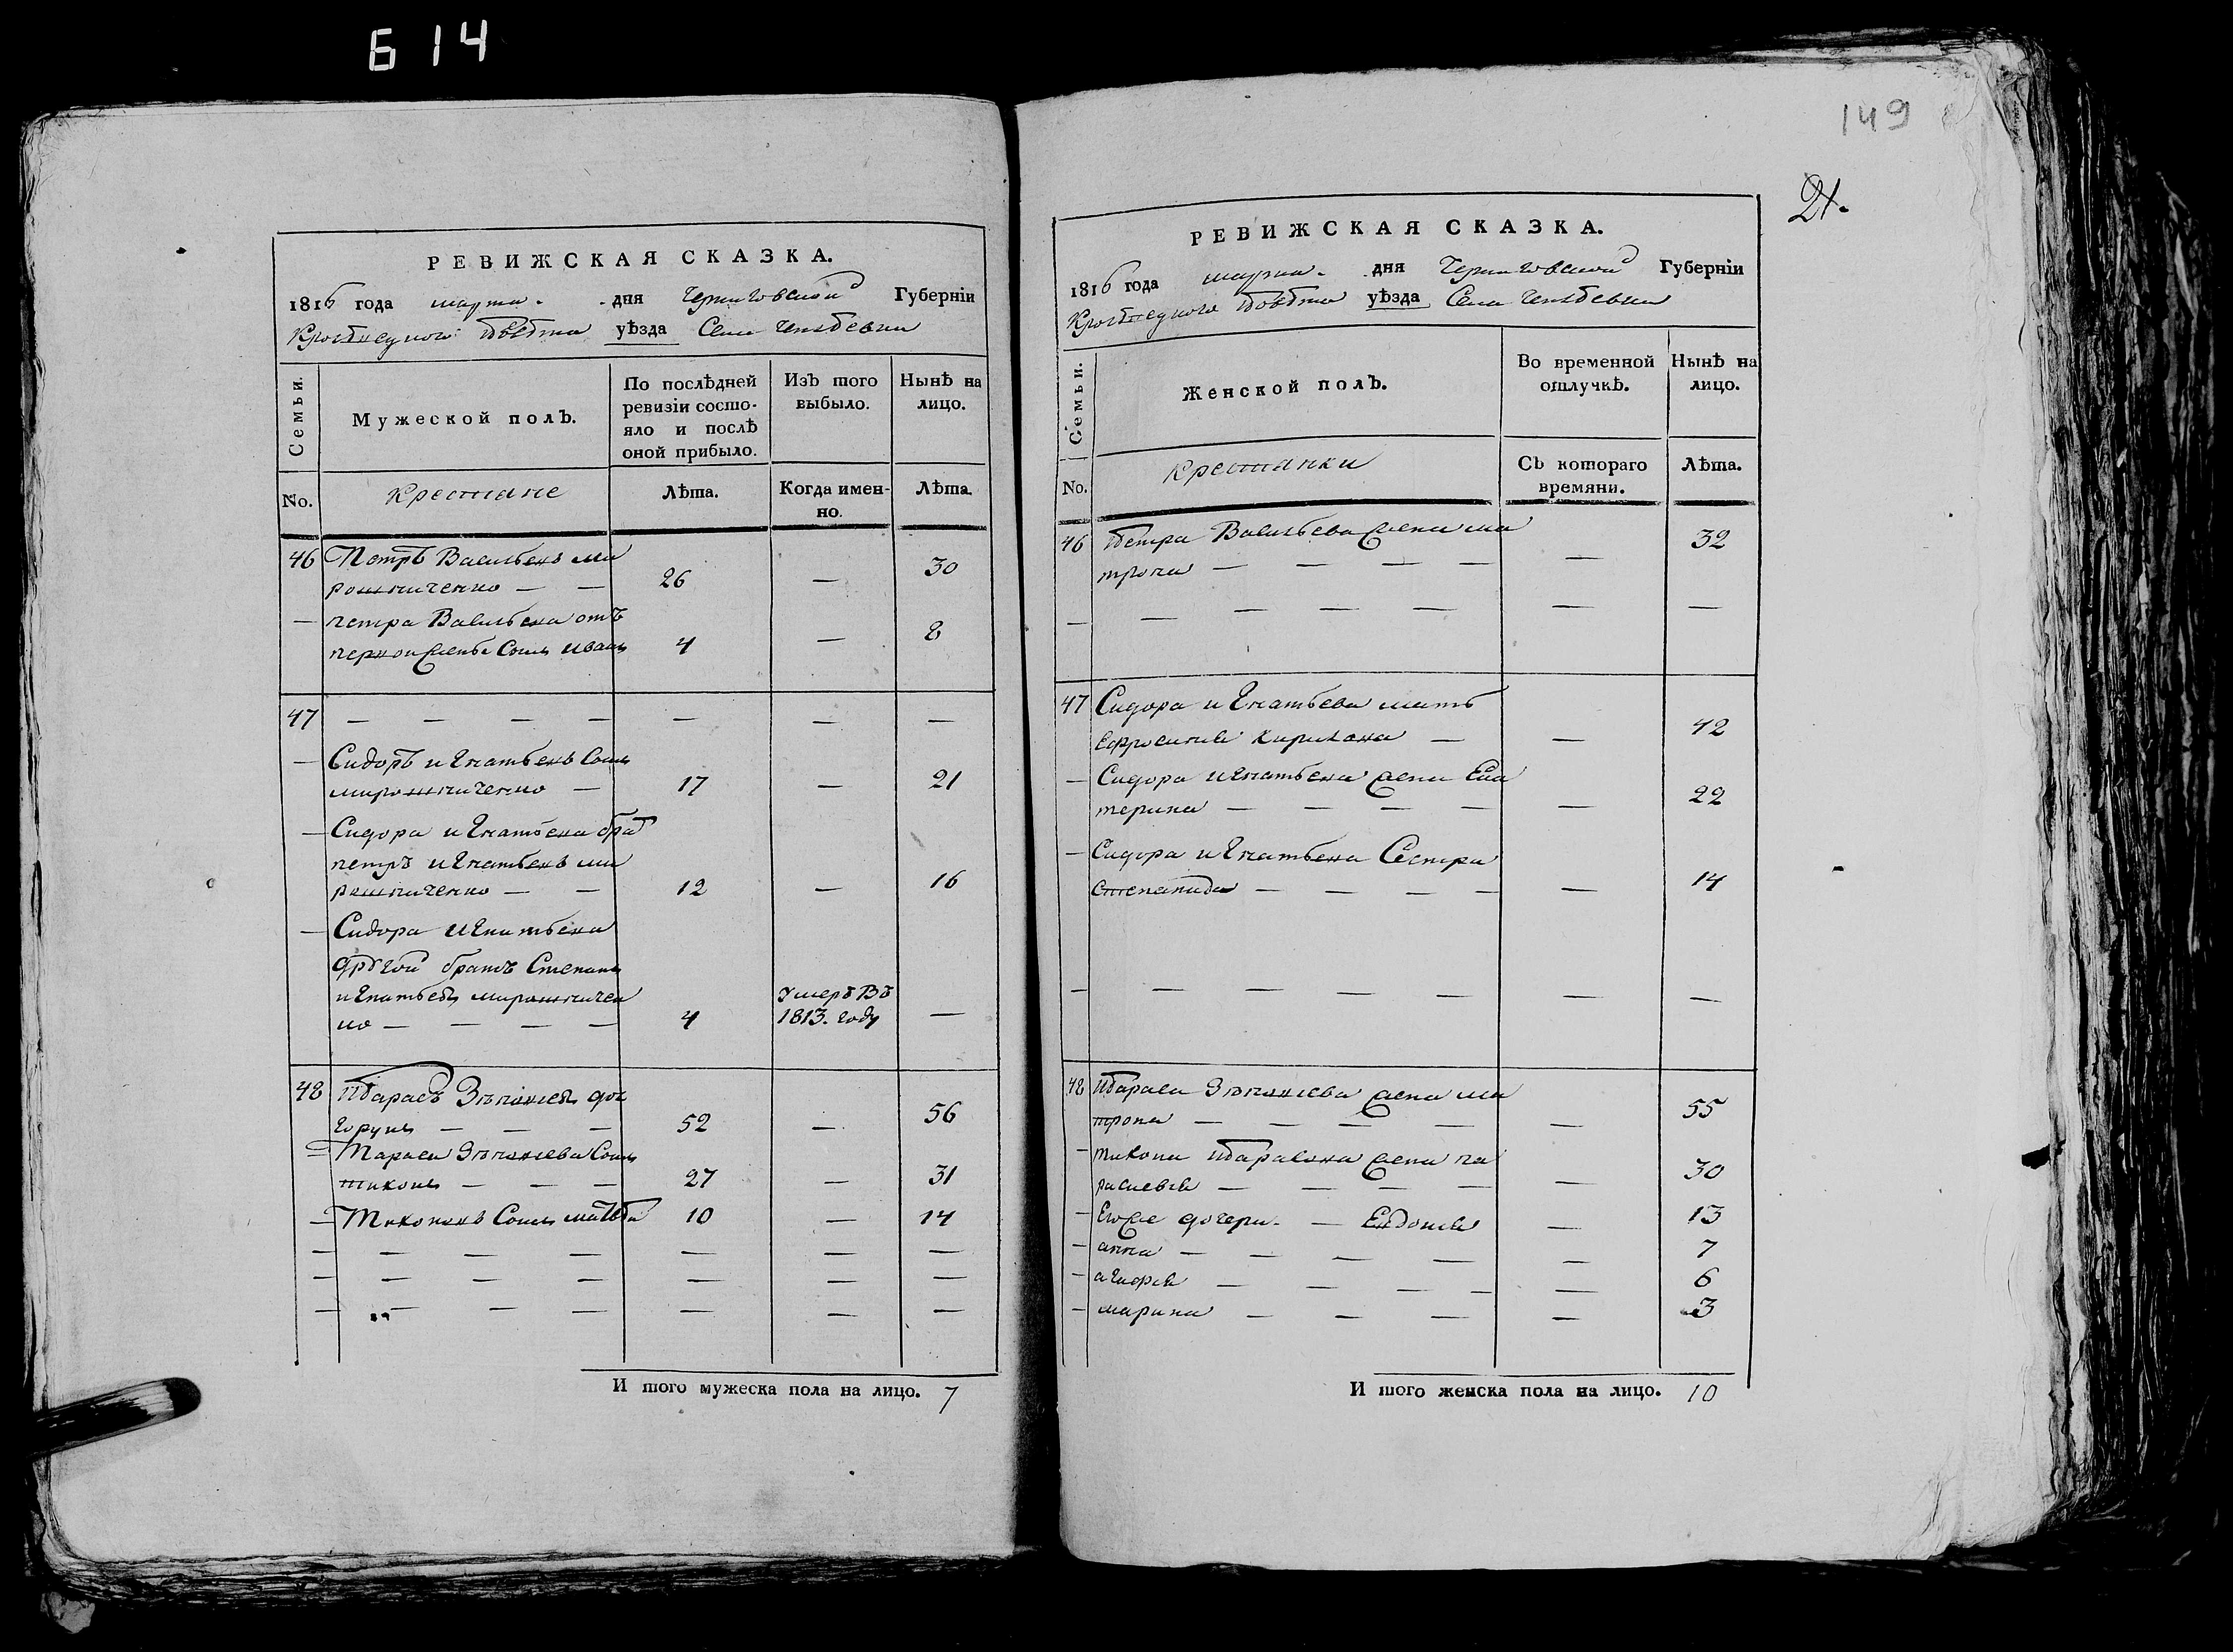 614
149
21.
РЕВИЖСКАЯ СКАЗКА.
1816 года марта. дня Черниговской Губерніи
повѣта уѣзда Села
Семьи.
Мужеской полЪ.
По послѣдней ревизіи состо-
яло и послѣ
оной прибыло.
ИзЪ того
выбыло.
НынѢ на
лицо.
No.
Крестяне
ЛѢта.
Когда имен-
но.
ЛѢта.
46 Петръ Васильевъ ми
рошниченко — — 26 — 30
— петра Васильева отъ
первой жены Сынъ иванъ 4 — 8
47 — — — — — — —
— Сидоръ игнатьевъ Сынъ
мирошниченко — 17 — 21
— Сидора игнатьева брат
петръ игнатьевъ ми
рошниченко — — 12 — 16
— Сидора игнатьева
другой братъ Степанъ
игнатьевъ мирошничен
ко — — — — 4 умерЪ ВЪ 1813. году —
48 тарасъ
— — — 52 — 56
— Тараса Сынъ
тихонъ — — — 27 — 31
— Тихоновъ Сынъ матвѣй 10 — 14
— — — — — — —
— — — — — — —
— — — — — —
И того мужеска пола на лицо. 7
РЕВИЖСКАЯ СКАЗКА.
1816 года марта. дня Черниговской Губерніи
повѣта уѣзда Села
Семьи.
Женской полЪ.
Во временной
отлучкѢ.
НынѢ на
лицо.
No.
Крестянки
СЪ котораго
времяни.
ЛѢта.
46 петра Васильева жена ма
трона — — — — — 32
— — — — — — —
47 Сидора игнатьева мать
ефросинія кирилова — — 42
— Сидора игнатьева жена Ека
терина — — — — — 22
— Сидора игнатьева Сестра
степанида — — — — — 14
— — — — — — — —
48 тараса жена ма
трона — — — — — 55
— тихона тарасова жена па
расковія — — — — — 30
— Егоже дочери. — Евдокія — 13
— анна — — — — — 7
— агафія — — — — — 6
— марина — — — — 3
И того женска пола на лицо. 10